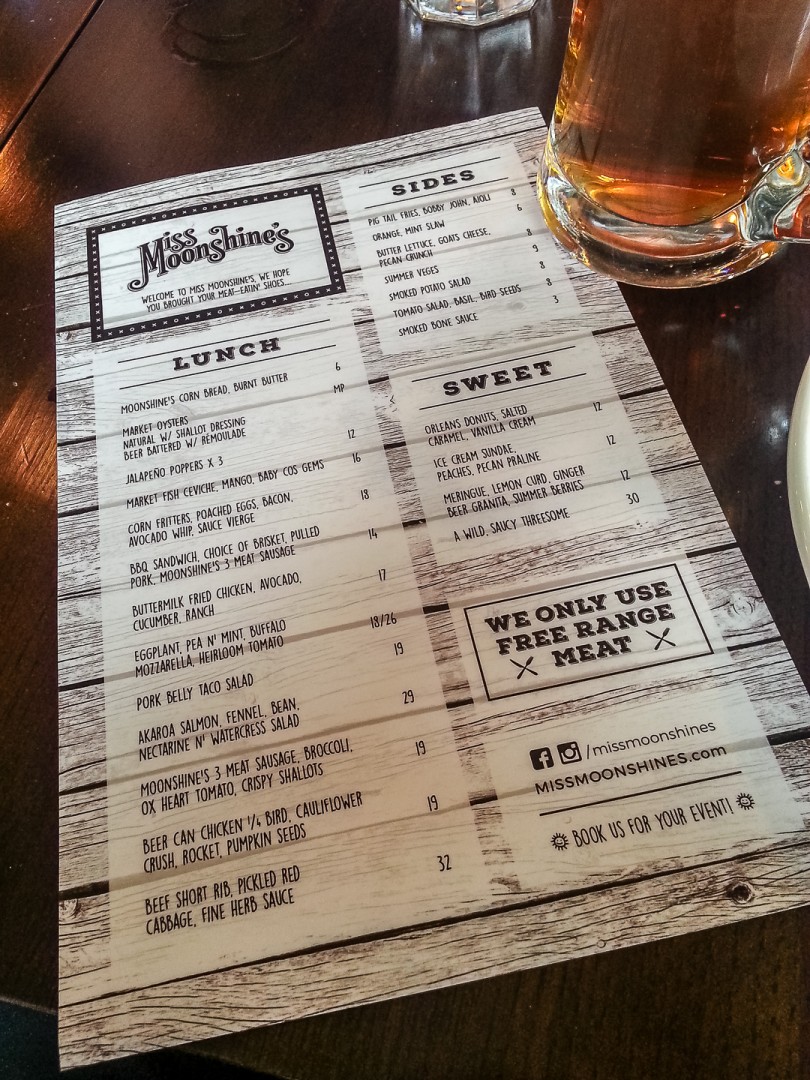 Miss
Moonshine's
WELCOME TO MISS MOONSHINE'S, WE HOPE
YOU BROUGHT YOUR MEAT-EATIN' SHOES...
LUNCH
MOONSHINE'S CORN BREAD, BURNT BUTTER 6
MARKET OYSTERS MP
NATURAL W/ SHALLOT DRESSING
BEER BATTERED W/ REMOULADE
JALAPEÑO POPPERS X 3 12
MARKET FISH CEVICHE, MANGO, BABY COS GEMS 16
CORN FRITTERS, POACHED EGGS, BACON, 18
AVOCADO WHIP, SAUCE VIERGE
BBQ SANDWICH, CHOICE OF BRISKET, PULLED 14
PORK, MOONSHINE'S 3 MEAT SAUSAGE
BUTTERMILK FRIED CHICKEN, AVOCADO, 17
CUCUMBER, RANCH
EGGPLANT, PEA N' MINT, BUFFALO 18/26
MOZZARELLA, HEIRLOOM TOMATO
PORK BELLY TACO SALAD 19
AKAROA SALMON, FENNEL, BEAN, 29
NECTARINE N' WATERCRESS SALAD
MOONSHINE'S 3 MEAT SAUSAGE, BROCCOLI, 19
OX HEART TOMATO, CRISPY SHALLOTS
BEER CAN CHICKEN 1/4 BIRD, CAULIFLOWER 19
CRUSH, ROCKET, PUMPKIN SEEDS
BEEF SHORT RIB, PICKLED RED 32
CABBAGE, FINE HERB SAUCE
SIDES
PIG TAIL FRIES, BOBBY JOHN, AIOLI 8
ORANGE, MINT SLAW 6
BUTTER LETTUCE, GOATS CHEESE, 8
PECAN CRUNCH
SUMMER VEGES 9
SMOKED POTATO SALAD 8
TOMATO SALAD, BASIL, BIRD SEEDS 8
SMOKED BONE SAUCE 3
SWEET
ORLEANS DONUTS, SALTED 12
CARAMEL, VANILLA CREAM
ICE CREAM SUNDAE, 12
PEACHES, PECAN PRALINE
MERINGUE, LEMON CURD, GINGER 12
BEER GRANITA, SUMMER BERRIES
A WILD, SAUCY THREESOME 30
WE ONLY USE
FREE RANGE
MEAT
/missmoonshines
MISSMOONSHINES.com
BOOK US FOR YOUR EVENT!